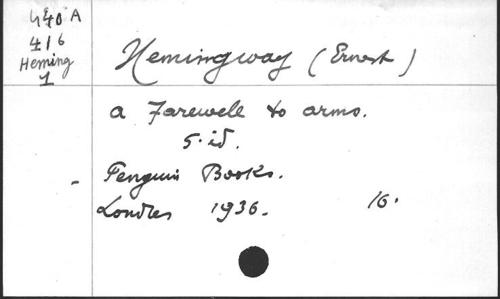 440 A
416
Heming
1
Hemingway (Ernest)
a Farewell to arms.
5. id.
Penguin Books.
- Londres 1936. 16.